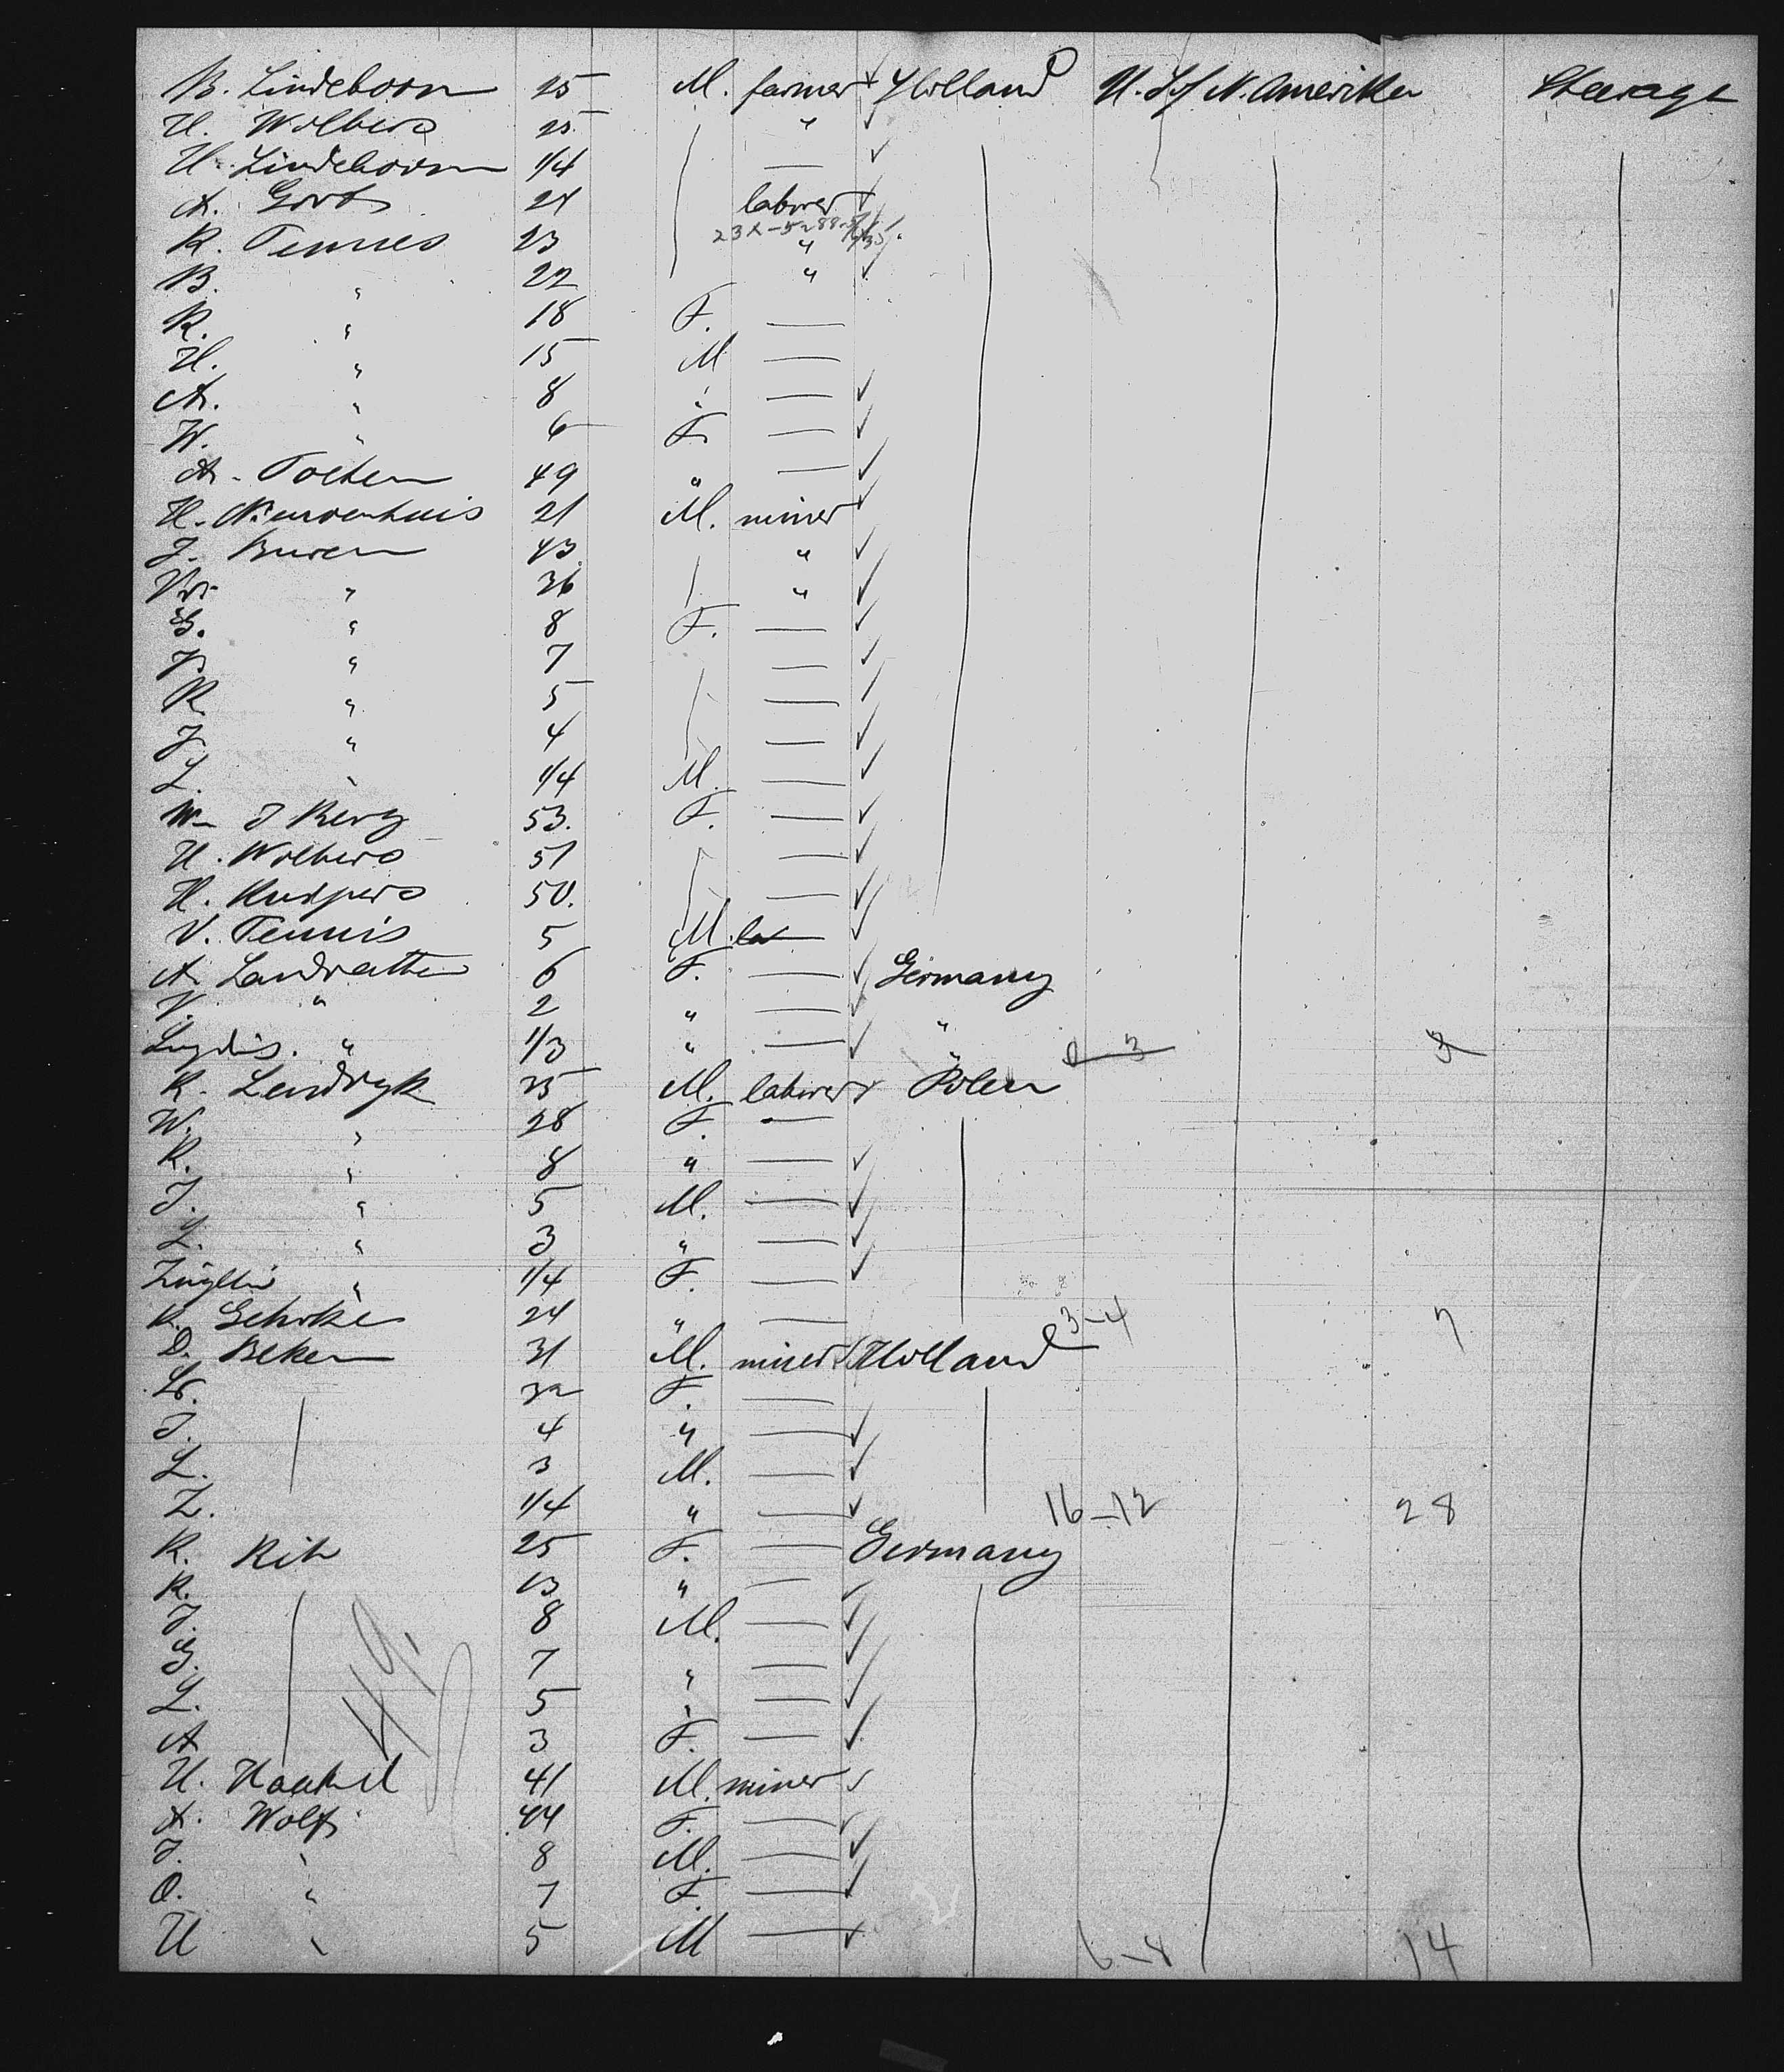 B. Lindeboom 25 M. farmer ✓ Holland U. S. of N. Amerika Steerage
H. Wolbers 25 " ✓
H. Lindeboom 1/4 — ✓
A. Grot 24 laborer ✓
23X-52885
R. Tennes 23 "
B. " 22 " ✓
R. " 18 F. —
H. " 15 M —
A. " 8 " — ✓
W. " 6 F. — ✓
A. 49 " — ✓
H. Nieuwenhuis 21 M. miner ✓
J. Buren 43 " ✓
" 36 " ✓
" 8 F. — ✓
" 7 — ✓
R. " 5 — ✓
J. " 4 — ✓
L. " 1/4 M. — ✓
J Berg 53. F. — ✓
H. Wolbers 51 — ✓
H. Kuipers 50. — ✓
V. Tennis 5 M. la ✓
A. 6 F. — ✓ Germany
" 2 " — ✓ "
" 1/3 " — ✓ " 0-3 3
R. Lendryk 35 M. laborer ✓ Polen
W. " 28 F. —
R. " 8 " — ✓
J. " 5 M. — ✓
L. " 3 " — ✓
" 1/4 F. — ✓
R. Gehrke 24 " — 3-4 7
D. Beken 31 M. miner ✓ Holland
32 F. —
J. 4 " — ✓
L. 3 M. — ✓
Z. 1/4 " — ✓ 16-12 28
R. 25 F. — Germany
R. 13 " — ✓
J. 8 M. — ✓
G. 7 " — ✓
L. 5 " — ✓
A 3 F. — ✓
49.
H. 41 M. miner ✓
A. Wolf 44 F. — ✓
J. " 8 M. — ✓
O. " 7 F. — ✓
H " 5 M — ✓ 6-8 14